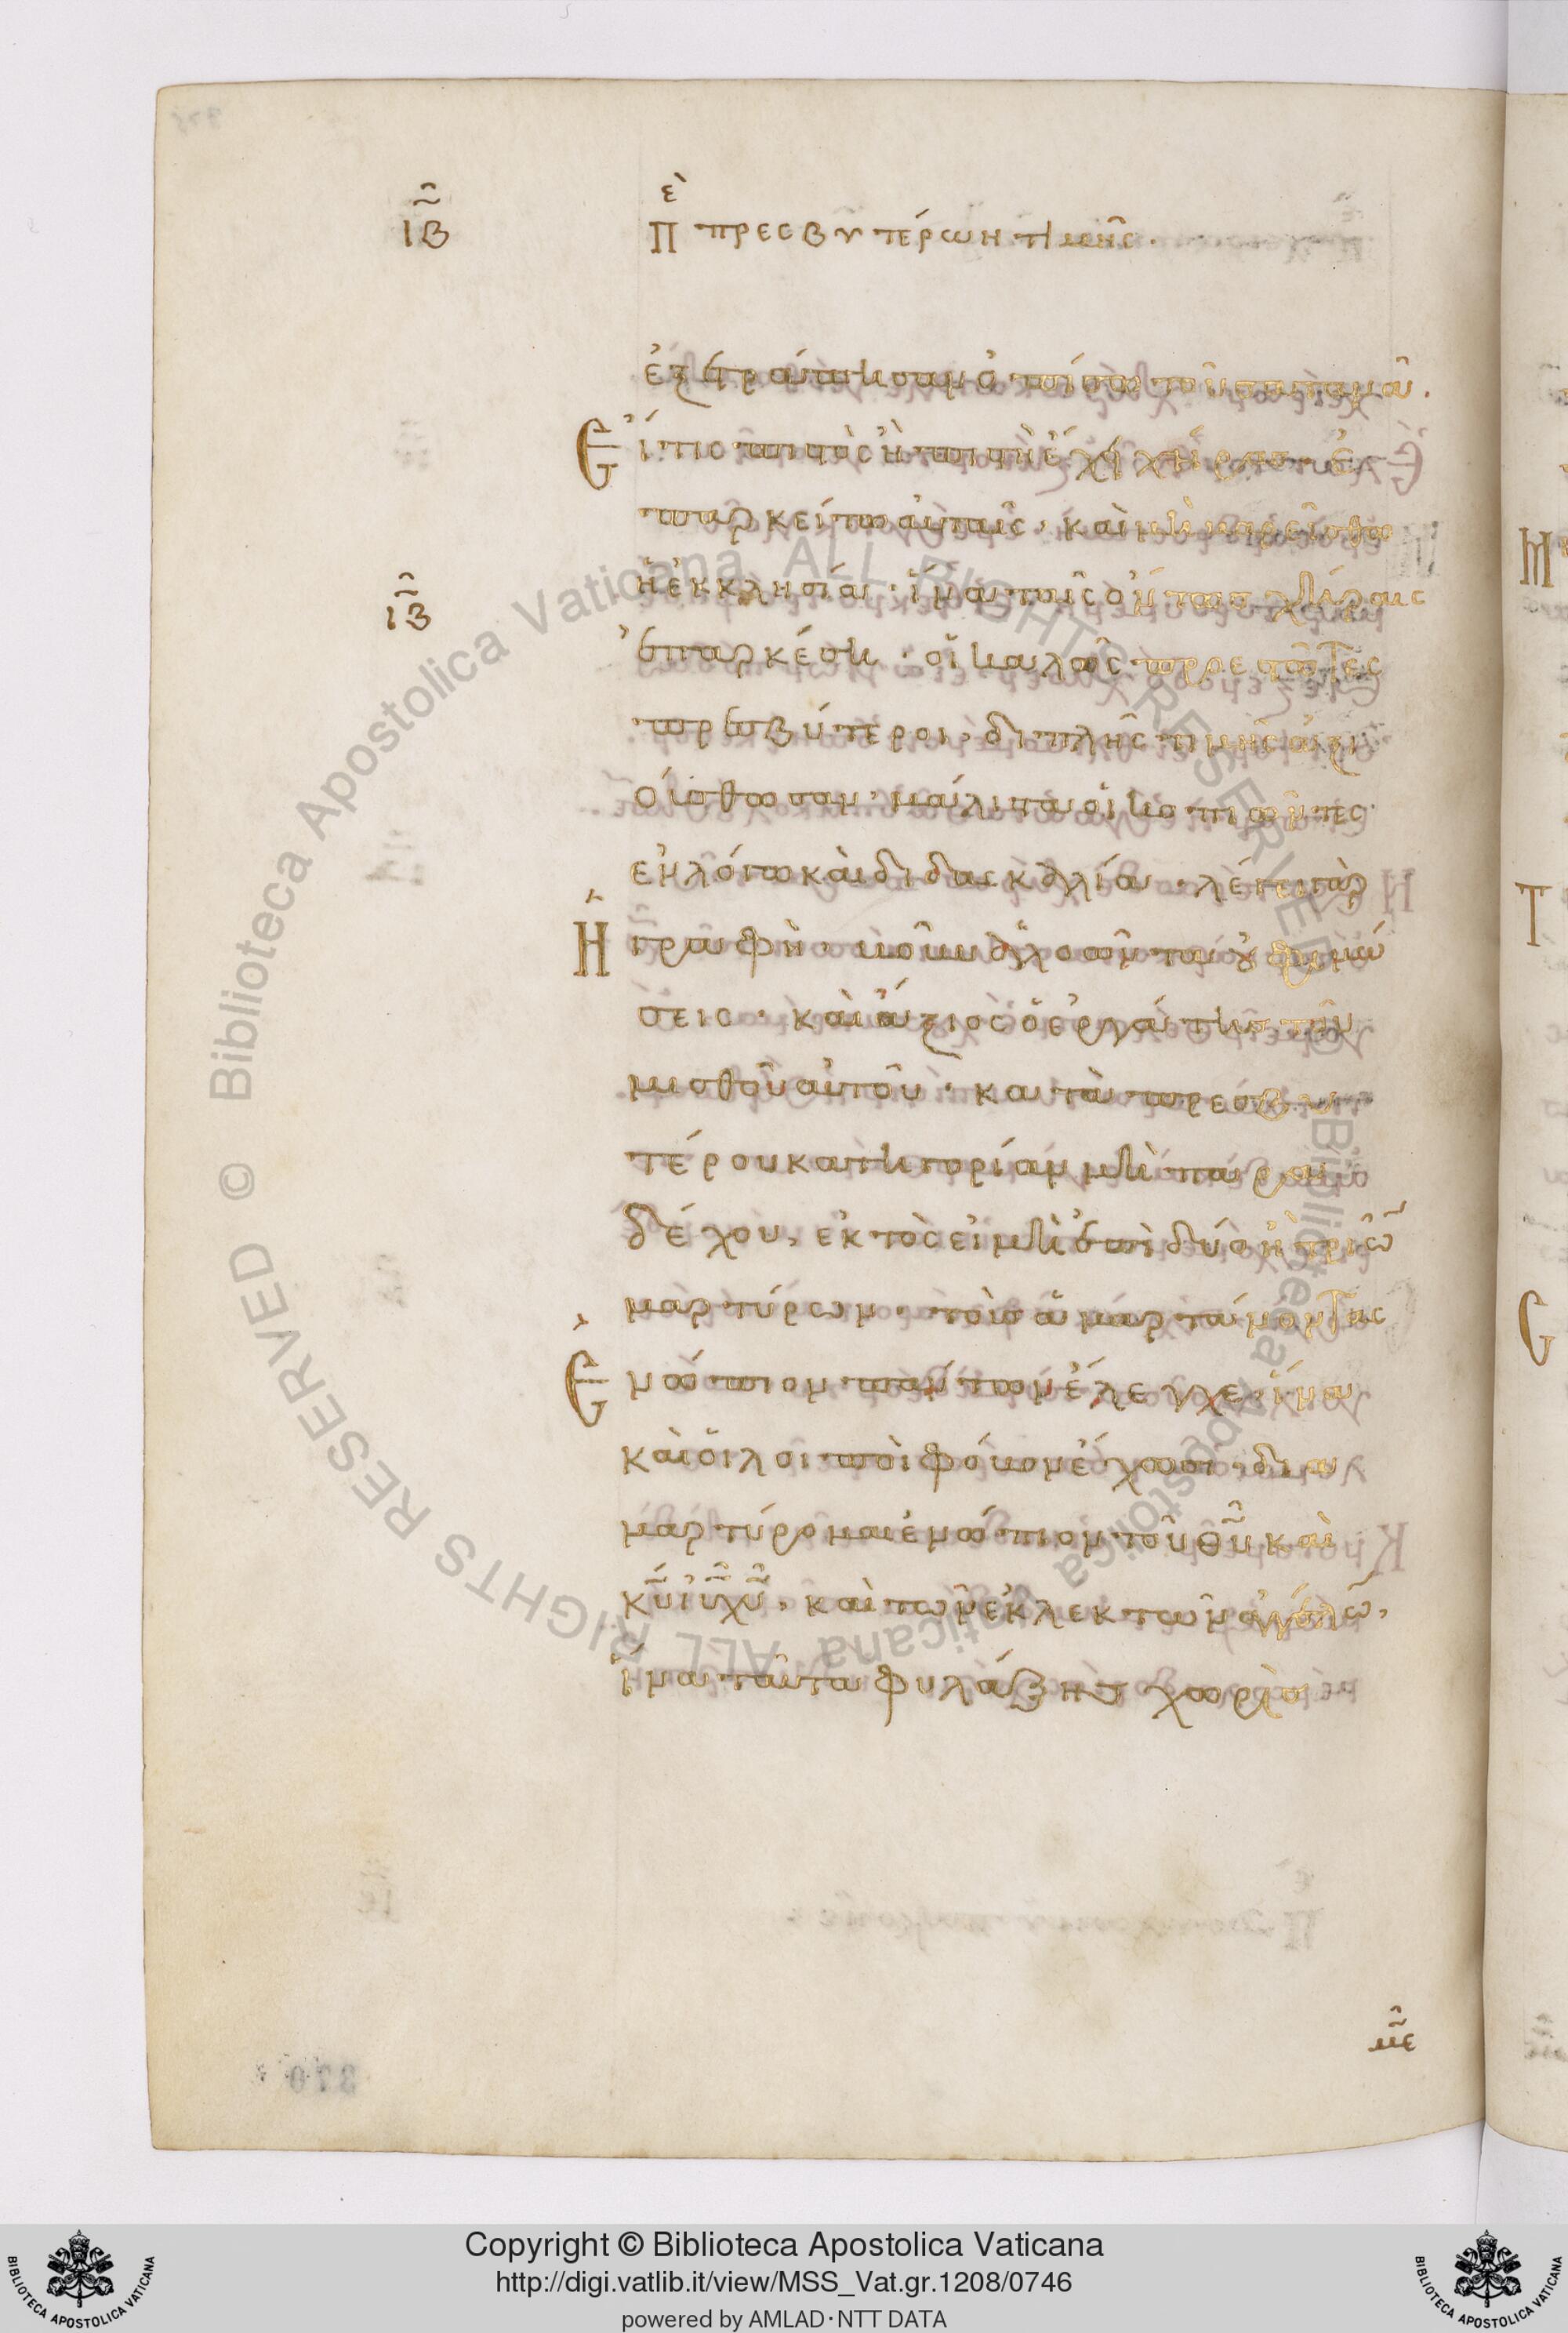 ιβ περὶ πρεσβυτέρων τιμῆς.
ἐξετράπησαν ὀπίσω τοῦ σατανᾶ.
Εἴ τις πιστὸς ἢ πιστὴ ἔχει χήρας, ἐ
παρκείτω αὐταῖς· καὶ μὴ βαρείσθω
ἡ ἐκκλησία· ἵνα ταῖς ὄντως χήραις
ιβ
ἐπαρκέση· οἱ καλῶς προεστῶτες
πρεσβύτεροι, διπλῆς τιμῆς ἀξι
ούσθωσαν· μάλιστα οἱ κοπιῶντες
ἐν λόγω καὶ διδασκαλία· λέγει γὰρ
Ἡ γραφὴ· βοῦν ἀλοῶντα οὐ φιμώ
σεις· καὶ ἄξιος ὁ ἐργάτης τοῦ
μισθοῦ αὐτοῦ· κατὰ πρεσβυ
τέρου κατηγορίαν μὴ παρα
δέχου, ἐκτὸς εἰ μὴ ἐπὶ δύο ἢ τριῶ
μαρτύρων· τοὺς ἁμαρτάνοντας
Ἐνώπιον πάντων ἔλεγχε, ἵνα
καὶ οἱ λοιποὶ φόβον ἔχωσι· δια
μαρτύρομαι ἐνώπιον τοῦ θ̅υ̅ καὶ
κ̅υ̅ ι̅υ̅ χ̅υ̅, καὶ τῶν ἐκλεκτῶν ἀγγέλω,
ἵνα ταῦτα φυλάξης χωρὶς
με
370
Biblioteca Apostolica Vaticana ALL RIGHTS RESERVED © Biblioteca Apostolica Vaticana ALL RIGHTS RESERVED ©
Copyright © Biblioteca Apostolica Vaticana
http://digi.vatlib.it/view/MSS_Vat.gr.1208/0746
powered by AMLAD·NTT DATA
BIBLIOTECA APOSTOLICA VATICANA
BIBLIOTECA APOSTOLICA VATICANA